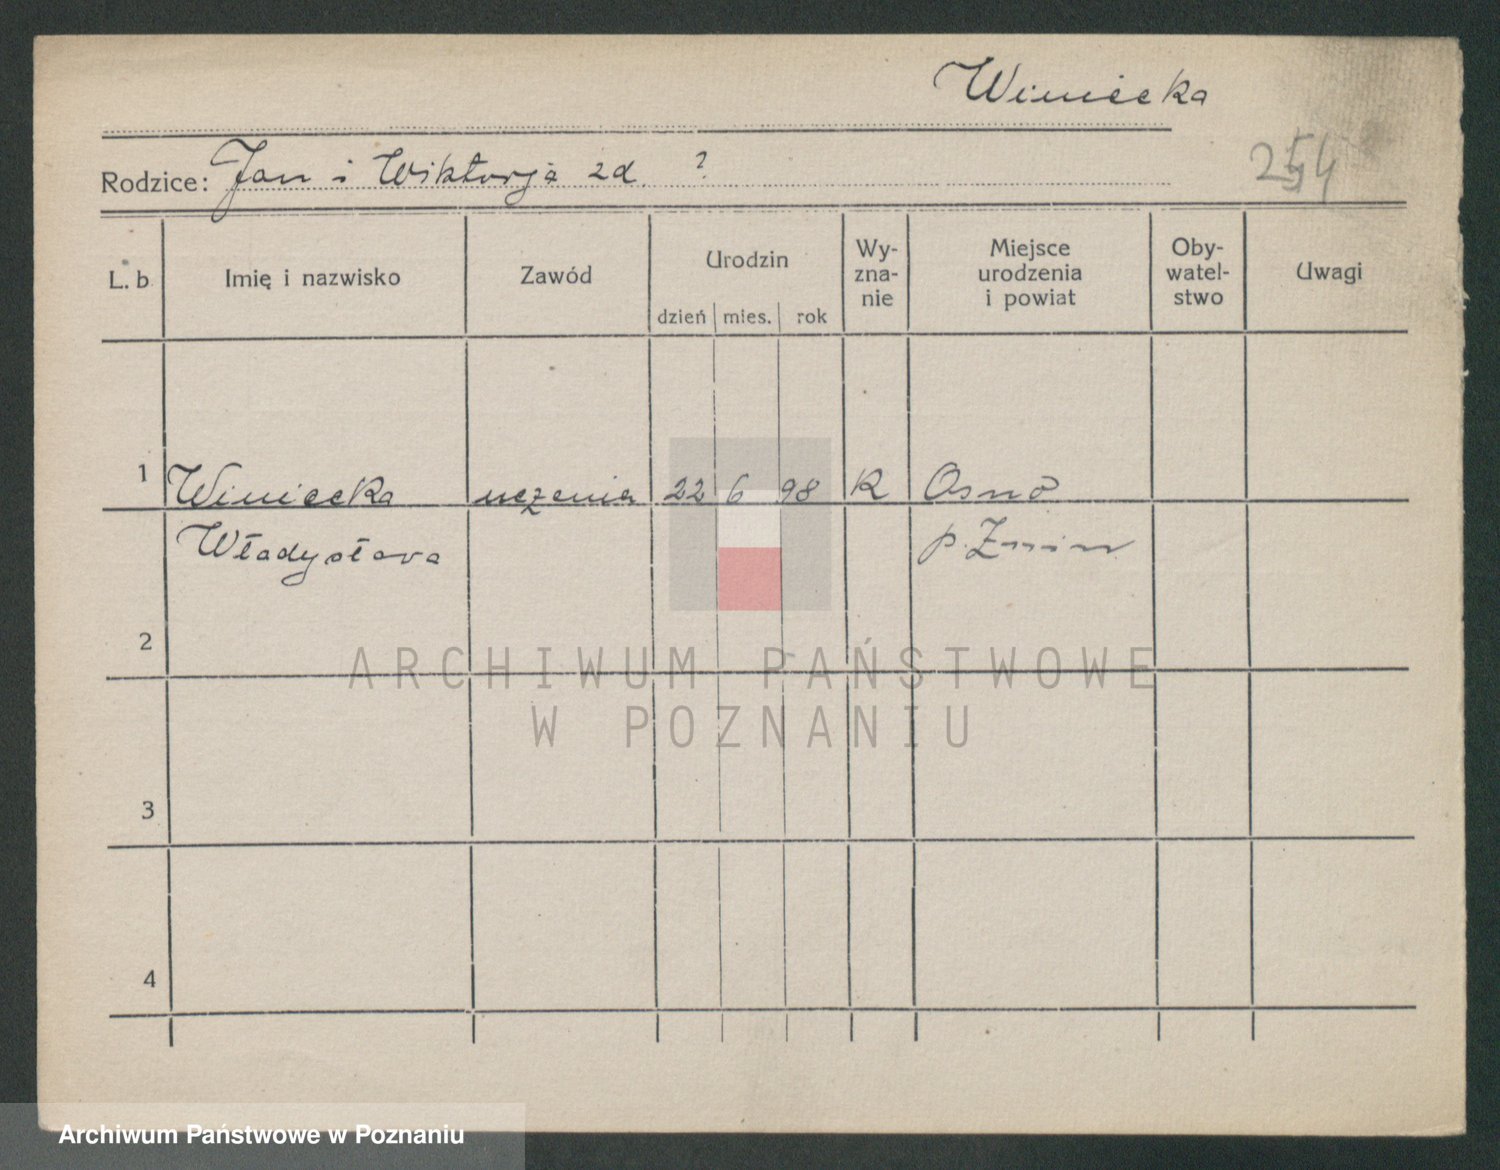 Winiecka
254
Rodzice: Jan i Wiktorja zd. ?
L. b. Imię i nazwisko Zawód Urodzin dzień mies. rok Wy-zna-nie Miejsce urodzenia i powiat Oby-watel-stwo Uwagi
1 Winiecka uczenia 22 6 98 R Osno
Władysława p. Żnin
2
ARCHIWUM PAŃSTWOWE
W POZNANIU
3
4
Archiwum Państwowe w Poznaniu